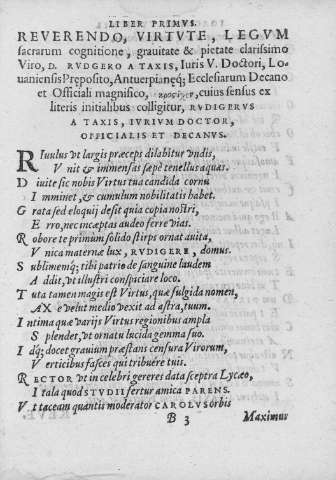 LIBER PRIMVS.
REVERENDO, VIRTVTE, LEGVM
sacrarum cognitione, grauitate & pietate clarissimo
Viro, D. RVDGERO A TAXIS, Iuris V. Doctori, Lo-
uaniensis Preposito, Antuerpianeq; Ecclesiarum Decano
et Officiali magnifico, cuius sensus ex
literis initialibus colligitur, RVDIGERVS
A TAXIS, IVRIVM DOCTOR,
OFFICIALIS ET DECANVS.
RIuulus vt largis præceps dilabitur vndis,
V nit & immensas sæpè tenellus aquas.
D iuite sic nobis Virtus tua candida cornu
I mminet, & cumulum nobilitatis habet.
G rata sed eloquij desit quia copia nostri,
E rro, nec incæptas audeo ferre vias.
R obore te primum solido stirps ornat auita,
V nica maternæ lux, RVDIGERE, domus.
S ublimemq; tibi patrio de sanguine laudem
A ddit, vt illustri conspiciare loco.
T uta tamen magis est Virtus, quæ fulgida nomen,
AX è velut medio vexit ad astra, tuum.
I ntima quæ varijs Virtus regionibus ampla
S plendet, vt ornatu lucida gemma suo.
I dq; docet grauium præstans censura Virorum,
V erticibus fasces qui tribuêre tuis.
RECTOR vt in celebri gereres data sceptra Lycæo,
I tala quod STVDII fertur amica PARENS.
V t taceam quantis moderator CAROLVS orbis
B 3
Maximus